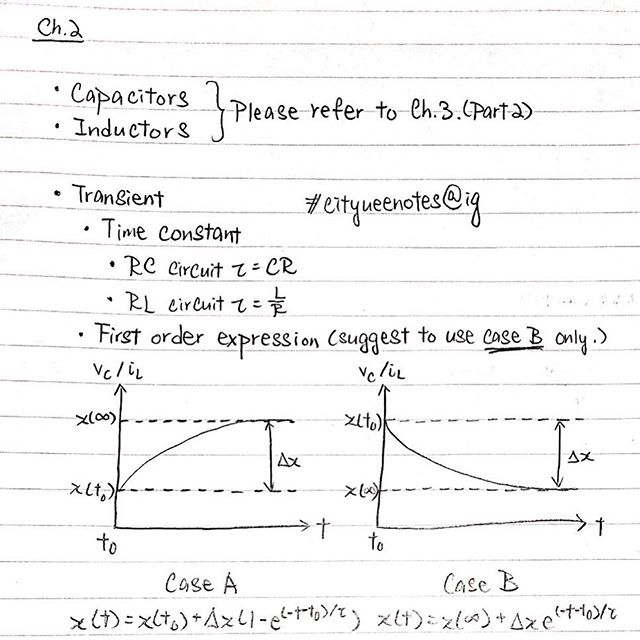 Ch.2
· Capacitors
· Inductors
} Please refer to Ch.3.(Part2)
· Transient
#cityueenotes@ig
· Time constant
· RC circuit τ=CR
· RL circuit τ=L/R
· First order expression (suggest to use case B only.)
Vc/iL
x(∞)
Δx
x(t₀)
t
t₀
Vc/iL
x(t₀)
Δx
x(∞)
t
t₀
Case A
Case B
x(t)=x(t₀)+Δx(1-e^(-t-t₀)/τ)
x(t)=x(∞)+Δxe^(-t-t₀)/τ